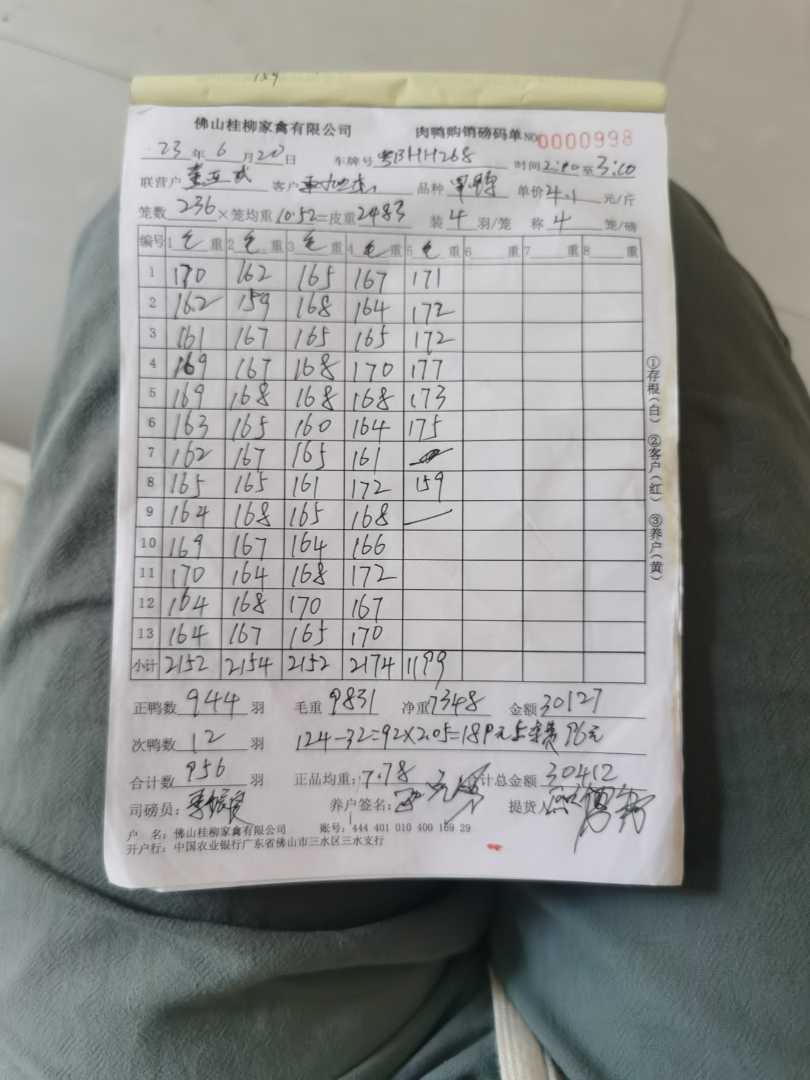 佛山桂柳家禽有限公司 肉鸭购销磅码单 NO 0000998
23年6月20日 车牌号粤BHH268 时间2:00至3:00
联营户 客户 品种 单价4.1元/斤
笼数236×笼均重10.52=皮重2483 装4羽/笼 称4笼/磅
编号 1毛重 2毛重 3毛重 4毛重 5毛重 6 重 7 重 8 重
1 170 162 165 167 171
2 162 159 168 164 172
3 161 167 165 165 172
4 169 167 168 170 177
5 169 168 168 168 173
6 163 165 160 164 175
7 162 167 165 161
8 165 165 161 172 159
9 164 168 165 168
10 169 167 164 166
11 170 164 168 172
12 164 168 170 167
13 164 167 165 170
小计 2152 2154 2152 2174 1199
正鸭数944羽 毛重9831 净重7348 金额30127
次鸭数12羽 124-32=92×2.05=189元 96元
合计数956羽 正品均重:7.78 计总金额30412
司磅员: 养户签名: 提货人
户 名:佛山桂柳家禽有限公司 账号:444 401 010 400 169 29
开户行:中国农业银行广东省佛山市三水区三水支行
①存根(白) ②客户(红) ③养户(黄)